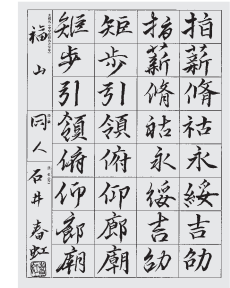 指薪脩祜永綏吉劭
指薪脩祜永綏吉劭
矩步引領俯仰廊廟
矩步引領俯仰廊廟
福山 同人 石井春虹